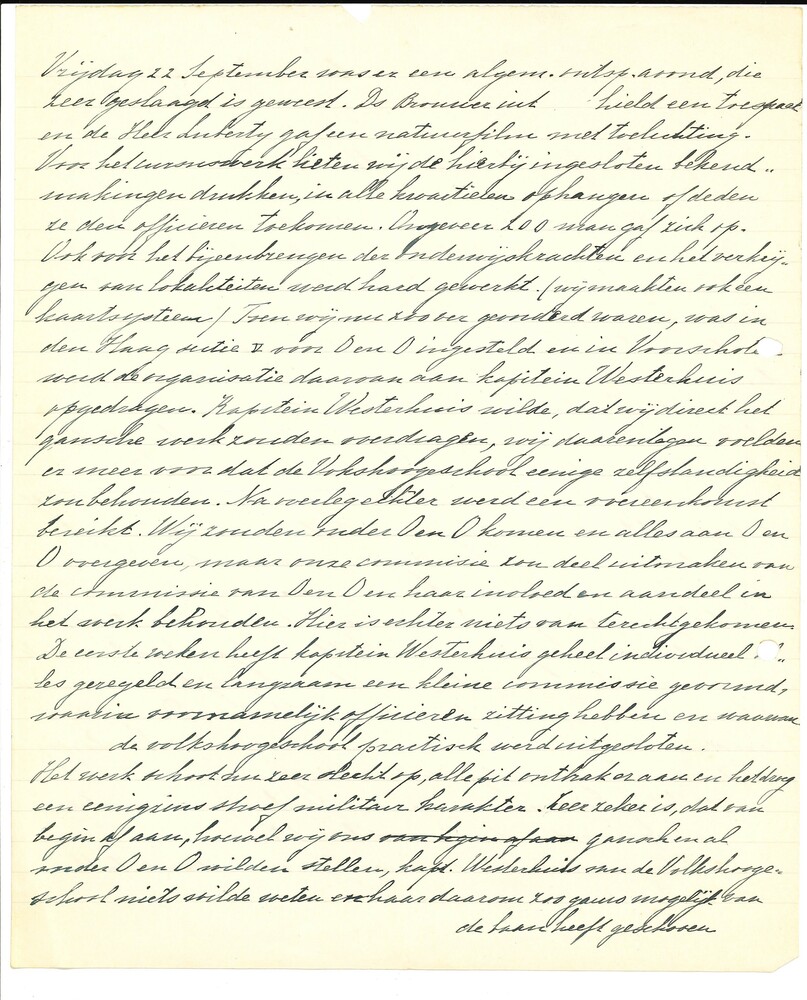 Vrijdag 22 September was er een algem. ontsp. avond, die
zeer geslaagd is geweest. Ds Brouwer uit hield een toespraak
en de Heer Luberty gaf een natuurfilm met toelichting.
Voor het cursuswerk lieten wij de hierbij ingesloten bekend„
makingen drukken, in alle kwartieren ophangen of deden
ze den officieren toekomen. Ongeveer 200 man gaf zich op.
Ook voor het bijeenbrengen der onderwijskrachten en het verkrij„
gen van lokaliteiten werd hard gewerkt. (wij maakten ook een
kaartsysteem) Toen wij nu zoo ver gevorderd waren, was in
den Haag sectie V voor O en O ingesteld en in Voorschote
werd de organisatie daarvan aan kapitein Westerhuis
opgedragen. Kapitein Westerhuis wilde, dat wij direct het
gansche werk zouden overdragen, wij daarentegen voelden
er meer voor dat de Volkshoogeschool eenige zelfstandigheid
zou behouden. Na overleg echter werd een overeenkomst
bereikt. Wij zouden onder O en O komen en alles aan O en
O overgeven, maar onze commissie zou deel uitmaken van
de commissie van O en O en haar invloed en aandeel in
het werk behouden. Hier is echter niets van terechtgekomen.
De eerste weken heeft kapitein Westerhuis geheel individueel al„
les geregeld en langzaam een kleine commissie gevormd,
waarin voornamelijk officieren zitting hebben en waarvan
de volkshoogeschool practisch werd uitgesloten.
Het werk schoot nu zeer slecht op, alle pit ontbrak er aan en het droeg
een eenigzins stroef militair karakter. Zeer zeker is, dat van
begin af aan, hoewel wij ons van begin af aan gansch en al
onder O en O wilden stellen, kapt. Westerhuis van de Volkshooge„
school niets wilde weten en haar daarom zoo gauw mogelijk van
de baan heeft geschoven